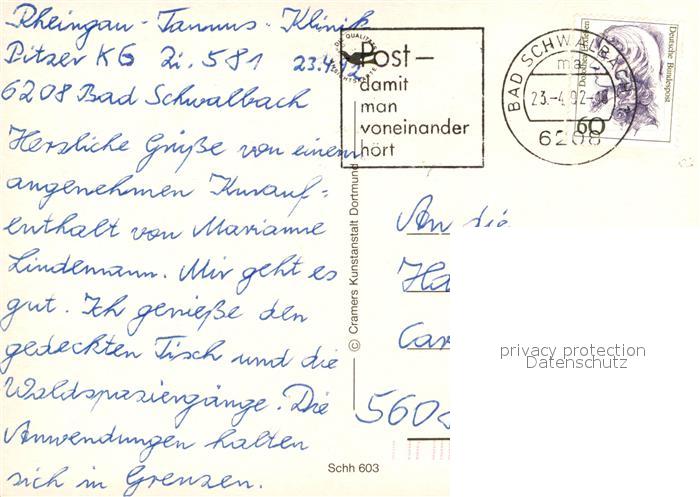 Rheingau-Taunus-Klinik
Pitzer KG Zi. 581 23.4.92
6208 Bad Schwalbach
Herzliche Grüße von einem
angenehmen Kurauf=
enthalt von Marianne
Lindemann. Mir geht es
gut. Ich genieße den
gedeckten Tisch und die
Waldspaziergänge. Die
Anwendungen halten
sich in Grenzen.
Post –
damit
man
voneinander
hört
BAD SCHWALBACH 1
ma
23.-4.92-
6208
Deutsche Bundespost
60
© Cramers Kunstanstalt Dortmund
An die
560
privacy protection
Datenschutz
Schh 603